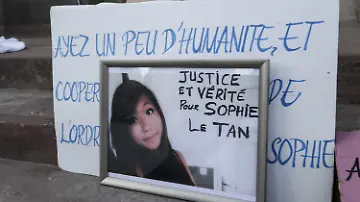 AYEZ UN PEU D'HUMANITE, ET
COOPER
DE
L'ORDR
SOPHIE
JUSTICE
ET VÉRITÉ
POUR SOPHIE
LE TAN
A